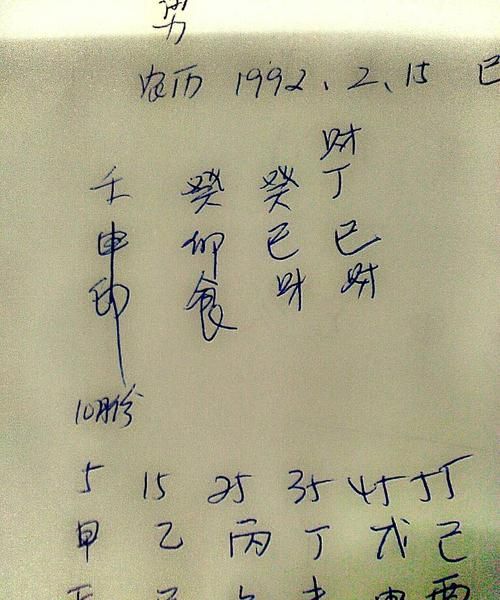 男
农历 1992、2、15 巳
财
壬 癸 癸 丁
申 卯 巳 巳
印 食 财 财
10月份
5 15 25 35 45 55
甲 乙 丙 丁 戊 己